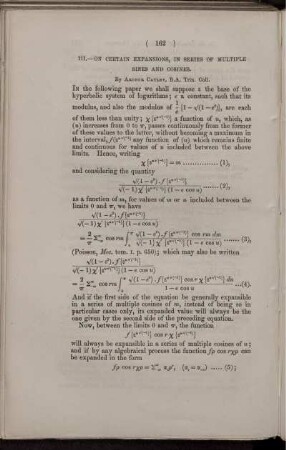 ( 162 )
III.—ON CERTAIN EXPANSIONS, IN SERIES OF MULTIPLE
SINES AND COSINES.
By ARTHUR CAYLEY, B.A. Trin. Coll.
In the following paper we shall suppose ε the base of the
hyperbolic system of logarithms; e a constant, such that its
modulus, and also the modulus of 1/e {1 - √(1-e²)}, are each
of them less than unity; χ {ε^{u√(-1)}} a function of u, which, as
(u) increases from 0 to π, passes continuously from the former
of these values to the latter, without becoming a maximum in
the interval, f{ε^{u√(-1)}} any function of (u) which remains finite
and continuous for values of u included between the above
limits. Hence, writing
χ {ε^{u√(-1)}} = m ............ (1),
and considering the quantity
√(1-e²). f {ε^{u√(-1)}} / √(-1) χ' {ε^{u√(-1)}} (1-e cos u) ...... (2),
as a function of m, for values of m or u included between the
limits 0 and π, we have
√(1-e²). f{ε^{u√(-1)}} / √(-1) χ' {ε^{u√(-1)}} (1-e cos u)
= 2/π Σ cos rm ∫ √(1-e²). f{ε^{u√(-1)}} cos rm dm / √(-1) χ' {ε^{u√(-1)}} (1-e cos u) ......(3),
(Poisson, Mec. tom. I. p. 650); which may also be written
√(1-e²). f{ε^{u√(-1)}} / √(-1) χ' {ε^{u√(-1)}} (1-e cos u)
= 2/π Σ cos rm ∫ √(1-e²). f{ε^{u√(-1)}} cos rχ {ε^{u√(-1)}} du / 1-e cos u ...(4).
And if the first side of the equation be generally expansible
in a series of multiple cosines of m, instead of being so in
particular cases only, its expanded value will always be the
one given by the second side of the preceding equation.
Now, between the limits 0 and π, the function
f {ε^{u√(-1)}} cos rχ {ε^{u√(-1)}}
will always be expansible in a series of multiple cosines of u;
and if by any algebraical process the function fρ cos rχρ can
be expanded in the form
fρ cos rχρ = Σ a_s ρ^s, (a_s = a_{-s}) ...... (5);